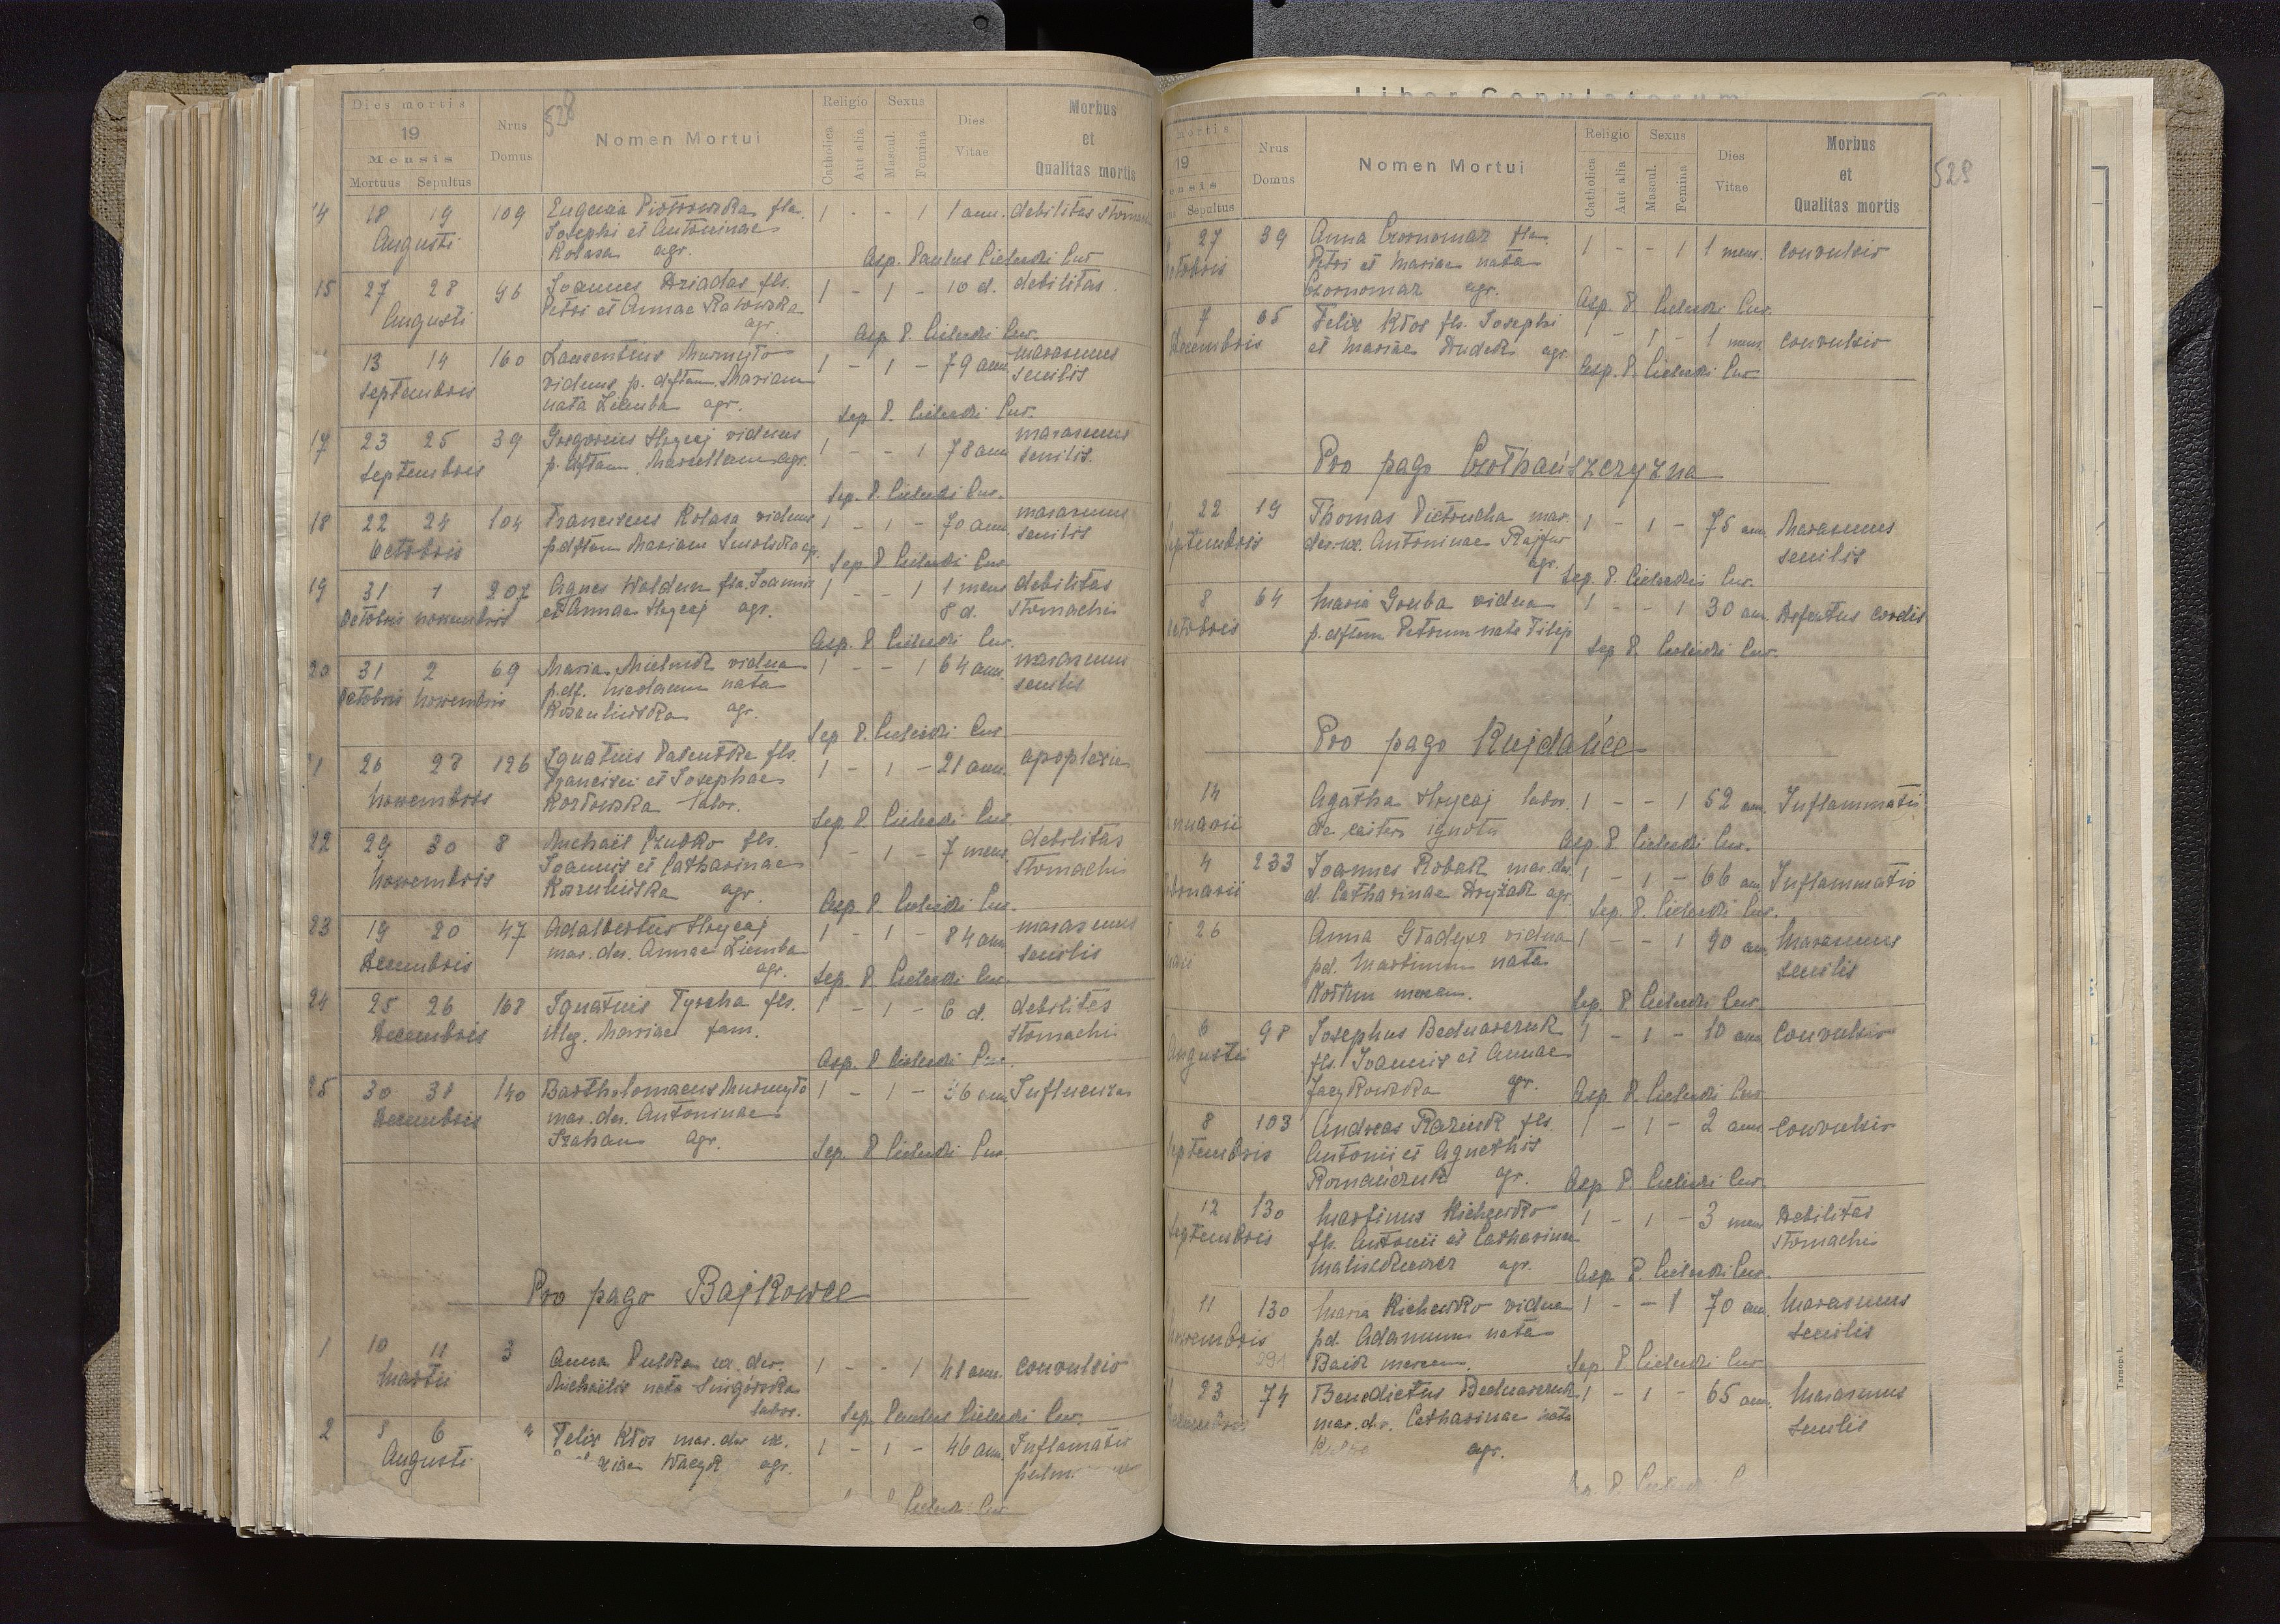 Dies mortis
19
Mensis
Mortuus Sepultus
Nrus Domus
528
Nomen Mortui
Religio
Catholica
Aut alia
Sexus
Mascul.
Femina
Dies Vitae
Morbus
et
Qualitas mortis
14 18 19 109 Eugenia Piotrowska fla. 1 - - 1 1 ann. debilitas stomachi
Augusti Josephi et Antoninae
Kolasa agr. Asp. Paulus Cielecki Cur.
15 27 28 96 Joannes Dziadas fls. 1 - 1 - 10 d. debilitas
Augusti Petri et Annae Rakowska
agr. Asp. P. Cielecki Cur.
13 14 160 Laurentius Murmyło 1 - 1 - 79 ann. marasmus
Septembris viduus p. dftam Mariam senilis
nata Ziemba agr. Sep. P. Cielecki Cur.
17 23 25 39 Gregorius Hrycaj viduus 1 - - 1 78 ann. marasmus
Septembris p. dftam Marcellam agr. senilis.
Sep. P. Cielecki Cur.
18 22 24 104 Franciscus Kolasa viduus 1 - 1 - 70 ann. marasmus
Octobris p. dftam Mariam Smolska agr. senilis
Sep. P. Cielecki Cur.
19 31 1 207 Agnes Waldun fla. Joannis 1 - - 1 1 mens. debilitas
Octobris Novembris et Annae Hrycaj agr. 8 d. stomachi
Asp. P. Cielecki Cur.
20 31 2 69 Maria Mielnik vidua 1 - - 1 64 ann. marasmus
Octobris Novembris p. df. Nicolaum nata senilis
agr.
Sep. P. Cielecki Cur.
21 26 28 126 Ignatius fls. 1 - 1 - 21 ann. apoplexia
Novembris Francisci et Josephae
Kozłowska labor. Sep. P. Cielecki Cur.
22 29 30 8 Michaël Czubko fls. 1 - 1 - 7 mens. debilitas
Novembris Joannis et Catharinae stomachi
agr. Asp. P. Cielecki Cur.
23 19 20 47 Adalbertus Hrycaj 1 - 1 - 84 ann. marasmus
Decembris mar. der. Annae Ziemba senilis
agr. Sep. P. Cielecki Cur.
24 25 26 168 Ignatius Tyrcha fls. 1 - 1 - 6 d. debilitas
Decembris illeg. Mariae fam. stomachi
Asp. P. Cielecki Cur.
25 30 31 140 Bartholomaeus Murmyło 1 - 1 - 36 ann. Influenza
Decembris mar. der. Antoninae
Szahan agr. Sep. P. Cielecki Cur.
Pro pago Bajkowce
1 10 11 3 Anna Pulka ux. der. 1 - - 1 41 ann. convulsio
Martii Michaëlis nata
labor. Sep. Paulus Cielecki Cur.
2 5 6 " Felix Kłos mar. der. ux. 1 - 1 - 46 ann. Inflamatio
Augusti Wacyk agr. pulm.
Cielecki Cur.
Liber Copulatorum
mortis
19
ensis
Sepultus
Nrus Domus
Nomen Mortui
Religio
Catholica
Aut alia
Sexus
Mascul.
Femina
Dies Vitae
Morbus
et
Qualitas mortis
529
27 39 Anna Czornomaz fla. 1 - - 1 1 mens. convulsio
Octobris Petri et Mariae nata
Czornomaz agr. Asp. P. Cielecki Cur.
7 65 Felix Kłos fls. Josephi 1 - 1 - 1 mens. convulsio
Decembris et Mariae Dudek agr.
Asp. P. Cielecki Cur.
Pro pago Czołhańszczyzna
22 19 Thomas Pietrucha mar. 1 - 1 - 75 ann. Marasmus
Septembris der. ux. Antoninae Rajfur senilis
agr. Sep. P. Cielecki Cur.
8 64 Maria Gruba vidua 1 - - 1 30 ann. Defectus cordis
Octobris p. dftum Petrum nata Filip
Sep. P. Cielecki Cur.
Pro pago Kujdańce
14 Agatha Hrycaj labor. 1 - - 1 52 ann. Inflammatio
Januarii de caeteris ignota
Asp. P. Cielecki Cur.
4 233 Joannes Robak mar. der. 1 - 1 - 66 ann. Inflammatio
Februarii d. Catharinae Dryżak agr.
Sep. P. Cielecki Cur.
26 Anna Gładysz vidua 1 - - 1 90 ann. Marasmus
Maii pd. Martinum nata senilis
Sep. P. Cielecki Cur.
6 98 Josephus Bednarczuk 1 - 1 - 10 ann. Convulsio
Augusti fls. Joannis et Annae
Jaczkowska agr. Asp. P. Cielecki Cur.
8 103 Andreas Raziuk fls. 1 - 1 - 2 ann. convulsio
Septembris Antonii et Agnethis
Romańczuk agr. Asp. P. Cielecki Cur.
12 130 Martinus Kichewko 1 - 1 - 3 mens. Debilitas
Septembris fls. Antonii et Catharinae stomachi
agr. Asp. P. Cielecki Cur.
11 130 Maria Kichewko vidua 1 - - 1 70 ann. Marasmus
Novembris pd. Adamum nata senilis
291 Sep. P. Cielecki Cur.
23 74 Benedictus Bednarczuk 1 - 1 - 65 ann. Marasmus
mar. der. Catharinae nata senilis
agr.
Tarnopol.